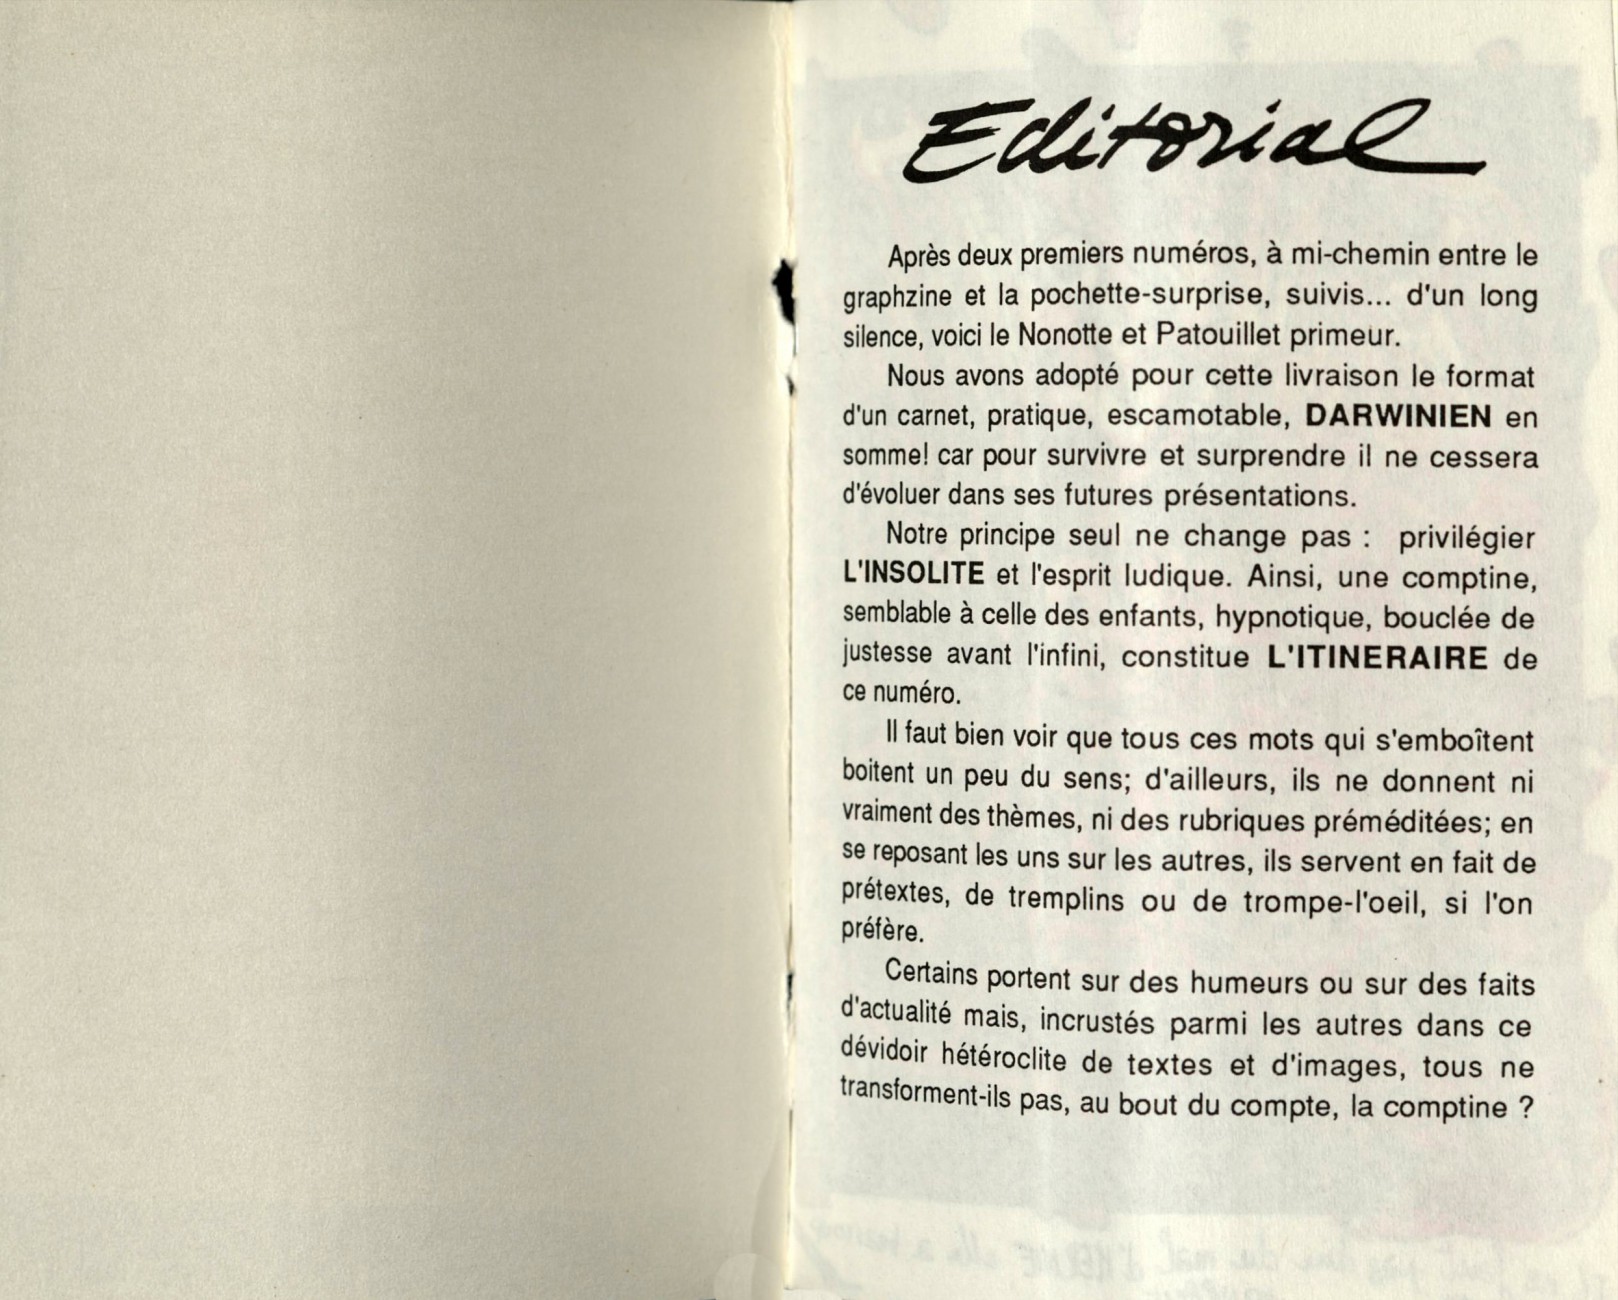 Editorial
Après deux premiers numéros, à mi-chemin entre le
graphzine et la pochette-surprise, suivis... d'un long
silence, voici le Nonotte et Patouillet primeur.
Nous avons adopté pour cette livraison le format
d'un carnet, pratique, escamotable, DARWINIEN en
somme! car pour survivre et surprendre il ne cessera
d'évoluer dans ses futures présentations.
Notre principe seul ne change pas : privilégier
L'INSOLITE et l'esprit ludique. Ainsi, une comptine,
semblable à celle des enfants, hypnotique, bouclée de
justesse avant l'infini, constitue L'ITINERAIRE de
ce numéro.
Il faut bien voir que tous ces mots qui s'emboîtent
boitent un peu du sens; d'ailleurs, ils ne donnent ni
vraiment des thèmes, ni des rubriques préméditées; en
se reposant les uns sur les autres, ils servent en fait de
prétextes, de tremplins ou de trompe-l'oeil, si l'on
préfère.
Certains portent sur des humeurs ou sur des faits
d'actualité mais, incrustés parmi les autres dans ce
dévidoir hétéroclite de textes et d'images, tous ne
transforment-ils pas, au bout du compte, la comptine ?